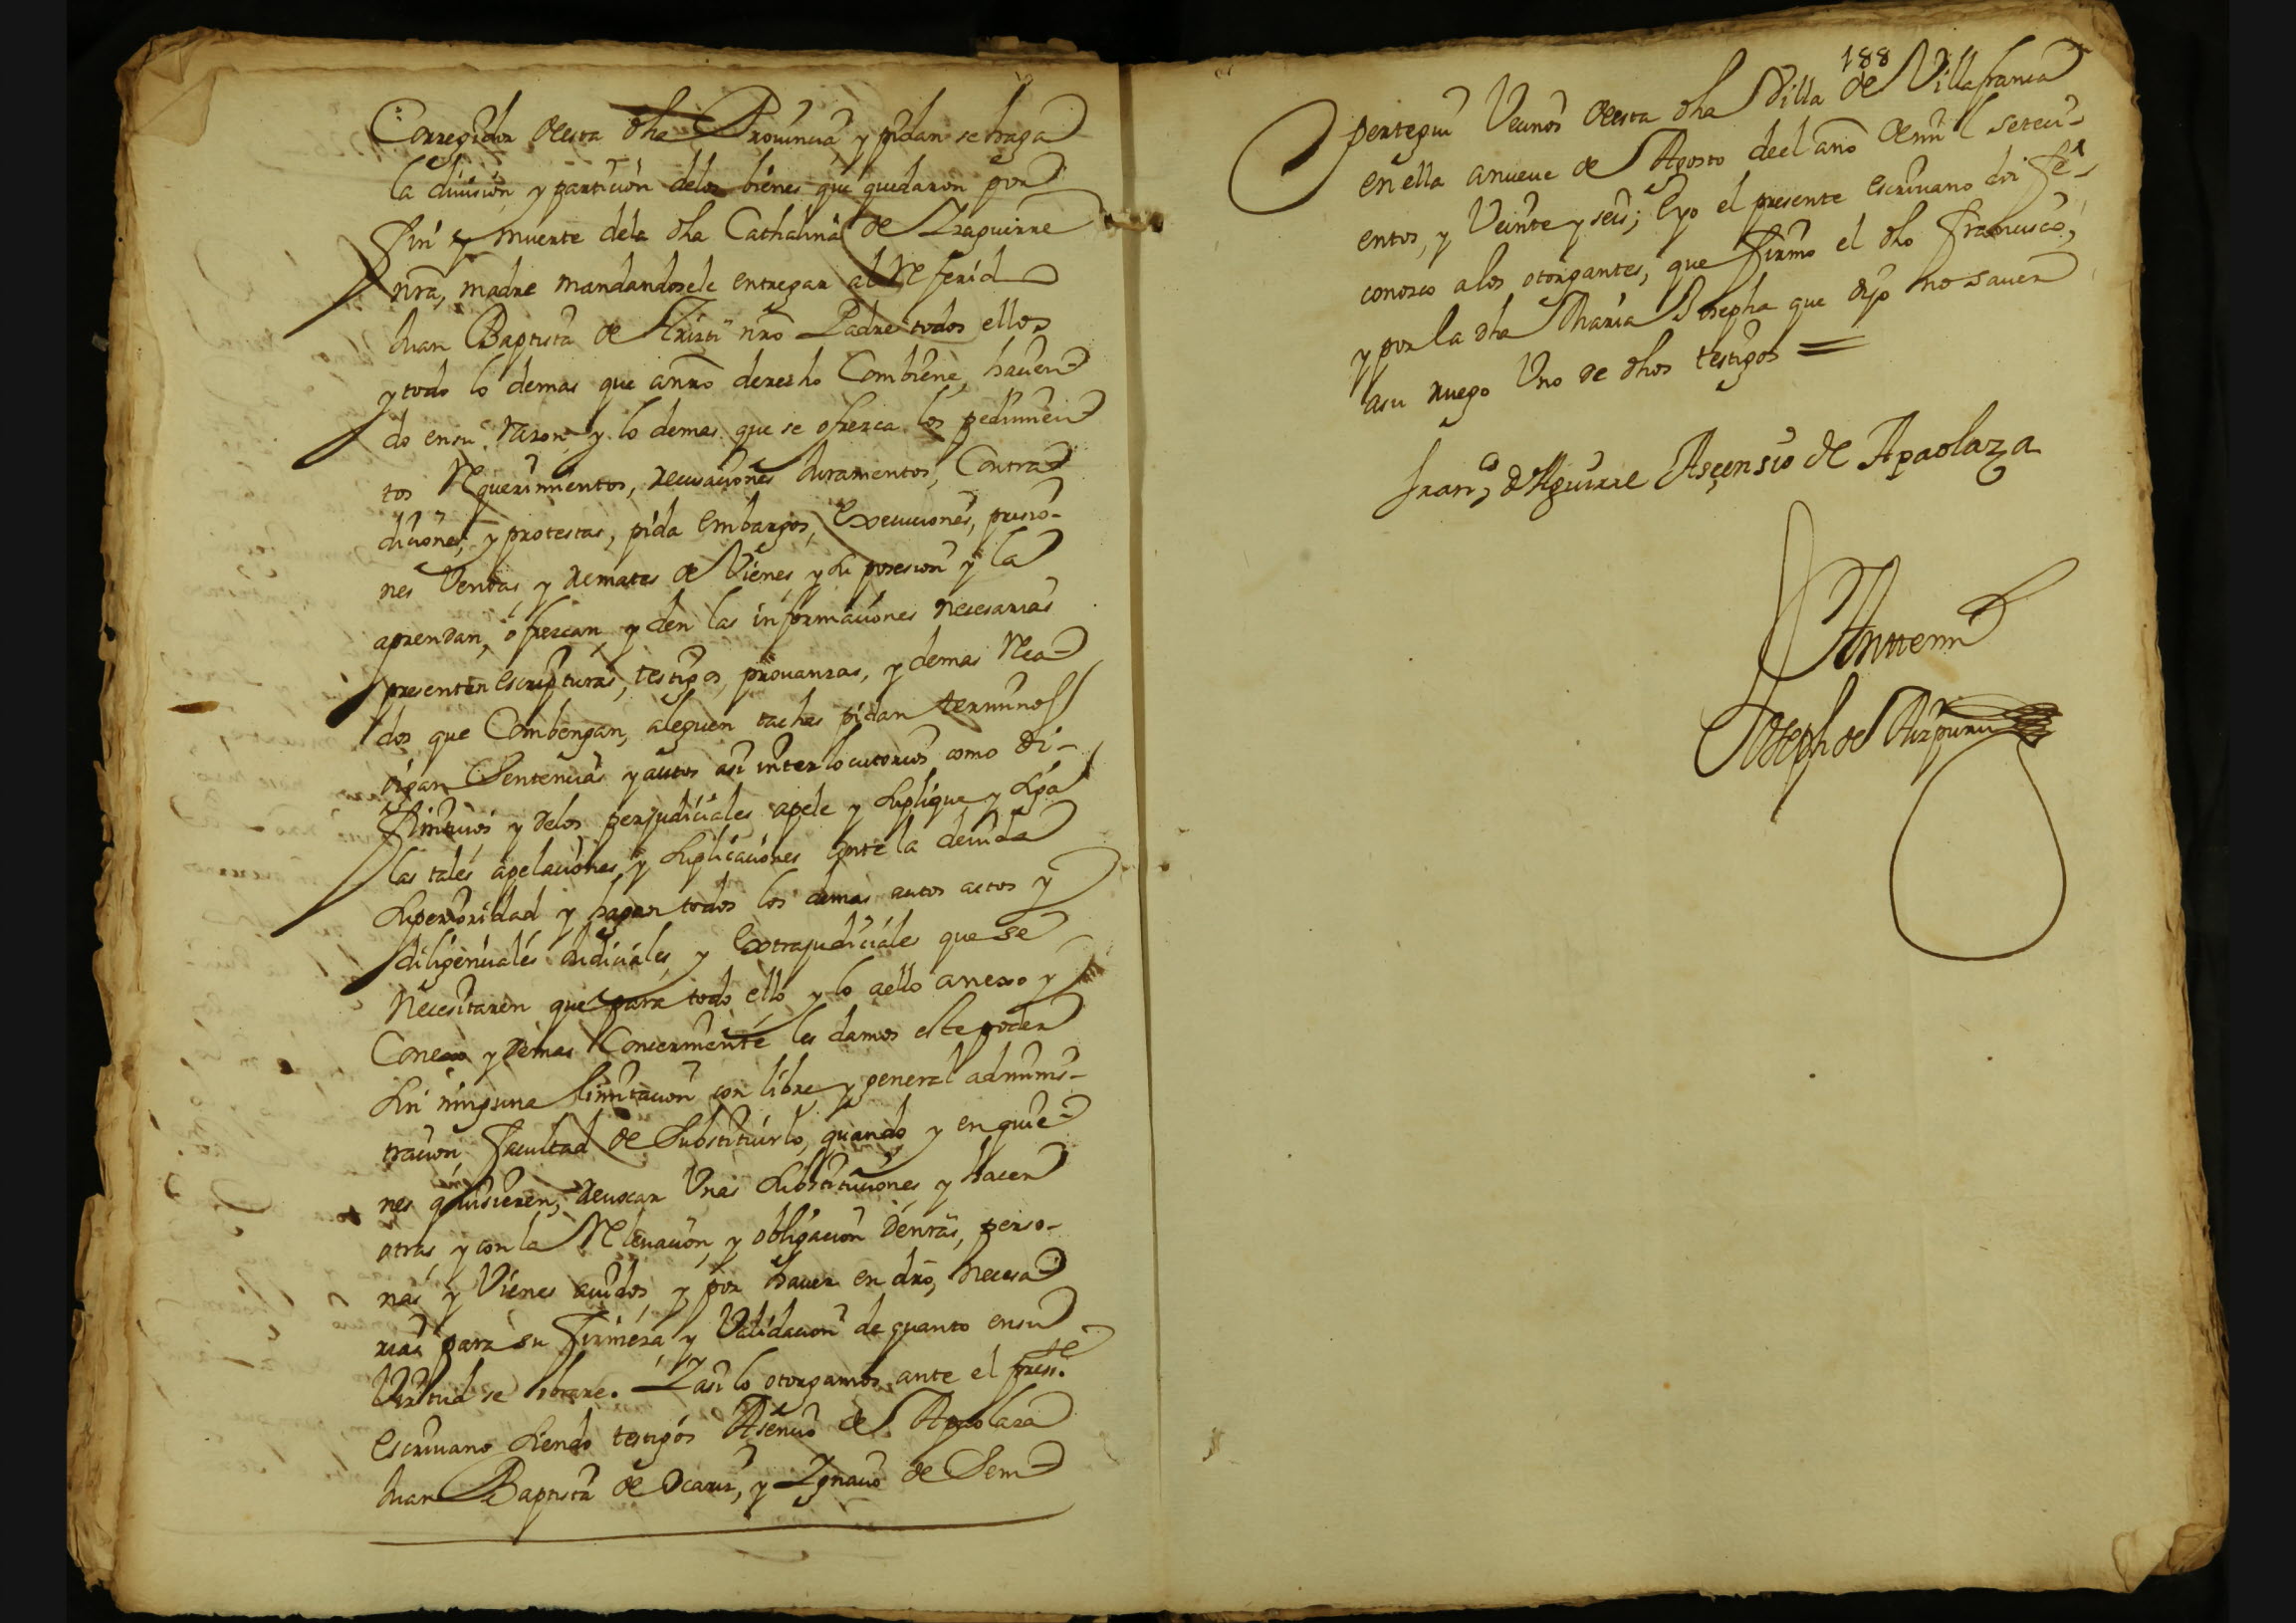 Corregidor desta dha Prouincia y pidan se haga
la diuision, y particion delos bienes que quedaron por
fin y muerte dela dha Cathalina de Yzaguirre
nra, madre mandandosele entregar al Referido
Juan Baptista de nro Padre todos ellos
y todo lo demas que anro derecho Combiene, hauien
do ensu razon y lo demas que se ofrezca los pedimien
tos Requerimientos, recusaciones Juramentos, Contra
diciones, y protestas, pida embargos, Execuciones, prisio-
nes Ventas, y remates de Vienes, y su posesion y la
aprendan, ofrezcan, y den las informaciones necesarias
presenten escripturas, testigos, prouanzas, y demas Reca
dos que Combengan, aleguen tachas pidan terminos
oigan Sentencias y autos asi interlocutorios como di-
finitiuos y delos perjudiciales apele y suplique y siga
las tales apelaciones y suplicaciones ante la deuida
superioridad y hagan todos los demas autos actos y
diligenciales Judiciales, y Extrajudiciales que se
Necesitaren que para todo ello y lo aello anexo y
Conexo y demas Concerniente les damos este poder
sin ninguna limitacion con libre, y general adminis-
tracion facultad de Substituirlo, quando y en quie
nes quisieren, reuocar Unas substituciones y hacer
otras, y con la Releuacion, y obligacion denras, perso-
nas y Vienes auidos, y por hauer en dro, necesa
rias para su firmeza, y Validacion de quanto ensu
Virtud se obrare. Y asi lo otorgamos ante el preste.
escriuano siendo testigos Asencio de Apaolaza
Juan Baptista de Ocariz, y Ygnacio de Sem
188
pertegui Vecinos desta dha Villa de Villafranca
en ella anueue de Agosto deel año de mil setecie
entos, y Veinte y seis; E yo el presente escriuano doi fé
conosco alos otorgantes, que firmo el dho francisco,
y por la dha Maria Josepha que dijo no sauer
asu ruego Uno de dhos testigos =
Franco de Aguirre Asçensio de Apaolaza
Ante mi
Joseph de Aizpuru